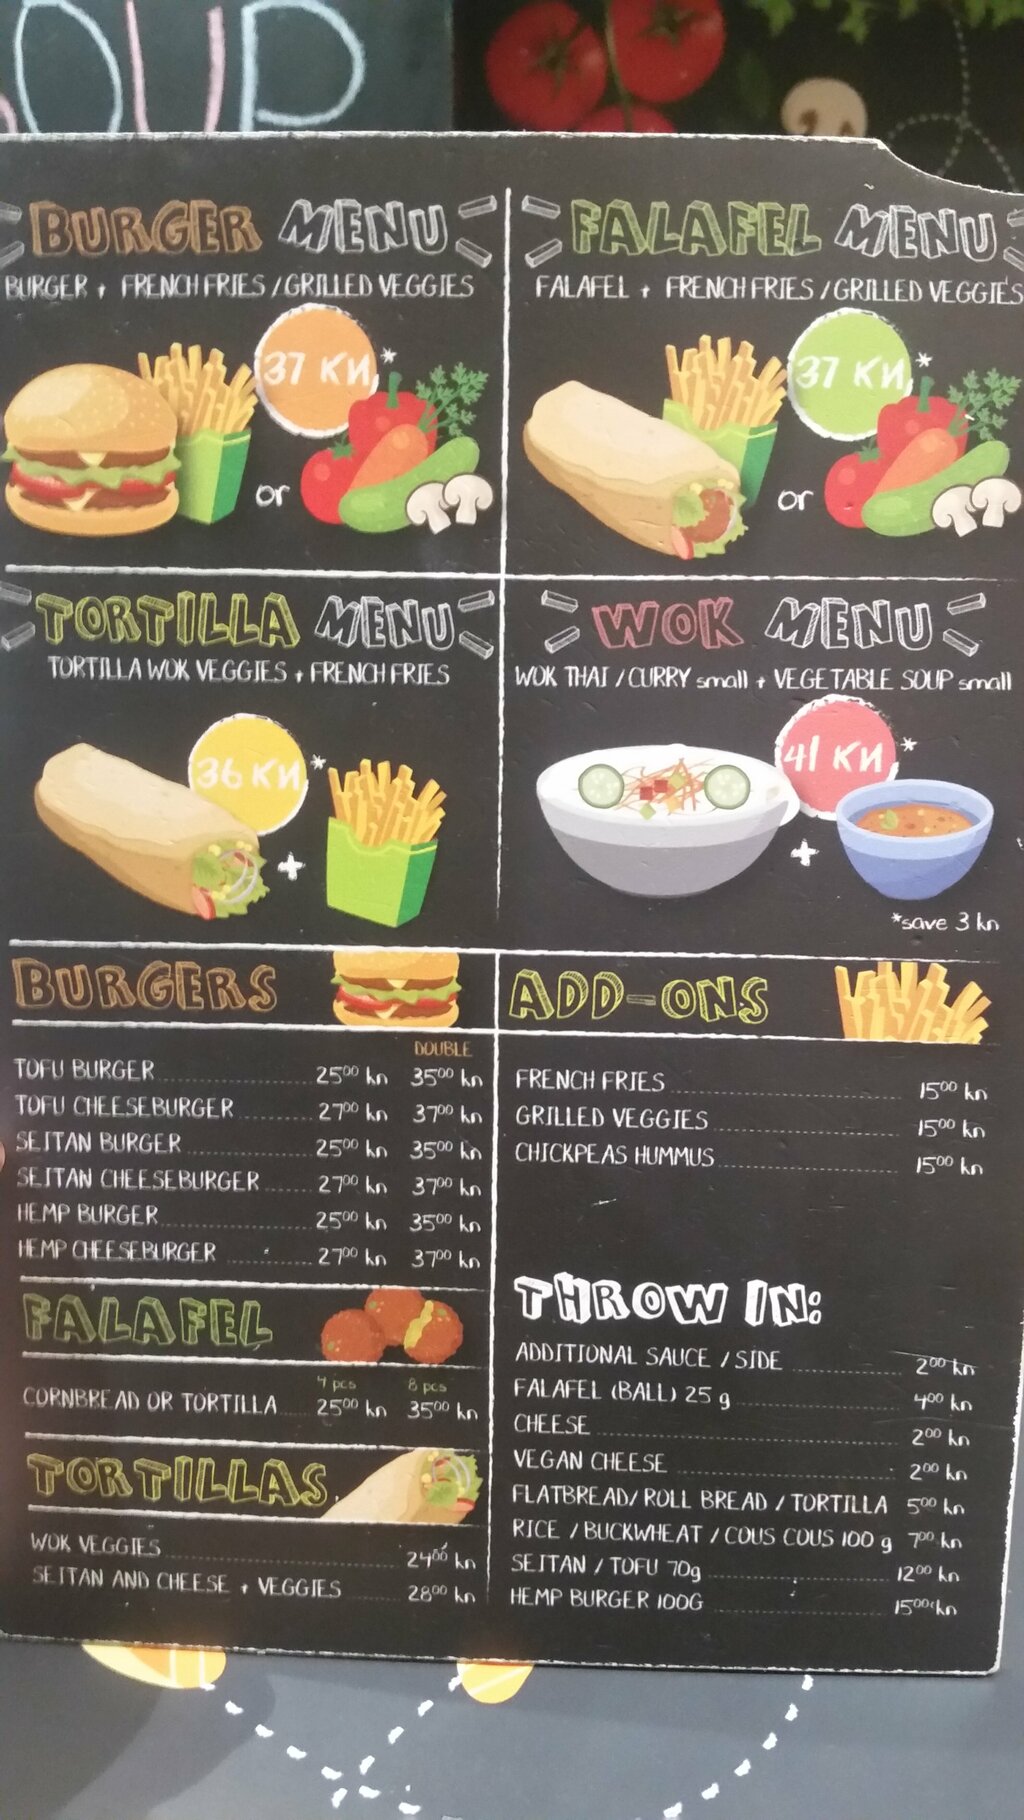 OUP
BURGER MENU
BURGER + FRENCH FRIES / GRILLED VEGGIES
37 KN*
or
FALAFEL MENU
FALAFEL + FRENCH FRIES / GRILLED VEGGIES
37 KN*
or
TORTILLA MENU
TORTILLA WOK VEGGIES + FRENCH FRIES
36 KN*
+
WOK MENU
WOK THAI / CURRY small + VEGETABLE SOUP small
41 KN*
+
*save 3 kn
BURGERS
DOUBLE
TOFU BURGER 25⁰⁰ kn 35⁰⁰ kn
TOFU CHEESEBURGER 27⁰⁰ kn 37⁰⁰ kn
SEITAN BURGER 25⁰⁰ kn 35⁰⁰ kn
SEITAN CHEESEBURGER 27⁰⁰ kn 37⁰⁰ kn
HEMP BURGER 25⁰⁰ kn 35⁰⁰ kn
HEMP CHEESEBURGER 27⁰⁰ kn 37⁰⁰ kn
FALAFEL
4 pcs 8 pcs
CORNBREAD OR TORTILLA 25⁰⁰ kn 35⁰⁰ kn
TORTILLAS
WOK VEGGIES 24⁰⁰ kn
SEITAN AND CHEESE + VEGGIES 28⁰⁰ kn
ADD-ONS
FRENCH FRIES 15⁰⁰ kn
GRILLED VEGGIES 15⁰⁰ kn
CHICKPEAS HUMMUS 15⁰⁰ kn
THROW IN:
ADDITIONAL SAUCE / SIDE 2⁰⁰ kn
FALAFEL (BALL) 25 g 4⁰⁰ kn
CHEESE 2⁰⁰ kn
VEGAN CHEESE 2⁰⁰ kn
FLATBREAD/ ROLL BREAD / TORTILLA 5⁰⁰ kn
RICE / BUCKWHEAT / COUS COUS 100 g 7⁰⁰ kn
SEITAN / TOFU 70g 12⁰⁰ kn
HEMP BURGER 100G 15⁰⁰ kn